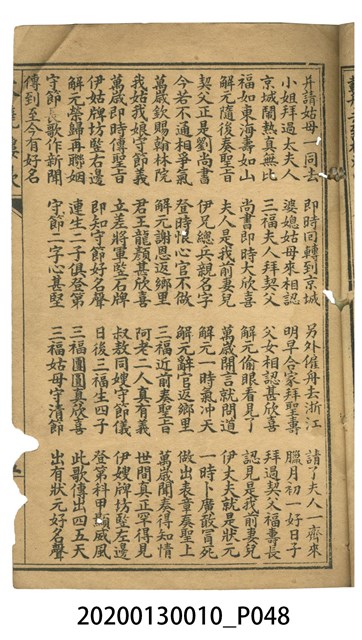 并請姑母一同去 即時同轉到京城 另外催舟去浙江 請了夫人一齊來
小姐拜過太夫人 婆媳姑母來相認 明早合家拜聖壽 臘月初一好日子
京城鬧熱真無比 三福夫人拜契父 父女相認甚欣喜 拜過契父福壽長
福如東海壽如山 尚書即時大欣喜 解元偷眼看見了 認見是我前妻兒
解元隨後奏聖旨 夫人是我前妻兒 萬歲開言就問道 伊丈夫就是狀元
契父正是劉尚書 伊兄總兵親名字 解元一時氣沖天 一時卜廣敢冒死
今若不通相爭氣 登時恨心官不做 解元辭官返鄉里 做出表章奏聖上
萬歲欽賜翰林院 解元謝恩返鄉里 三福近前奏聖旨 萬歲聞奏得知情
我姑我娘守節義 君王龍顏甚欣喜 阿老二人真有義 世間真正罕得見
萬歲即時傳聖旨 立差將軍竪石牌 叔教同嫂守節儀 伊嫂牌坊竪左邊
伊姑牌坊竪右邊 即知守節好名聲 日後三福生四子 登第科甲顯威風
解元榮歸再聯姻 連生二子俱登第 三福團圓真欣喜 此歌傳出四五天
守節長歌作新聞 守節一字心甚堅 三福姑母守清節 出有狀元好名聲
傳到至今有好名
20200130010_P048